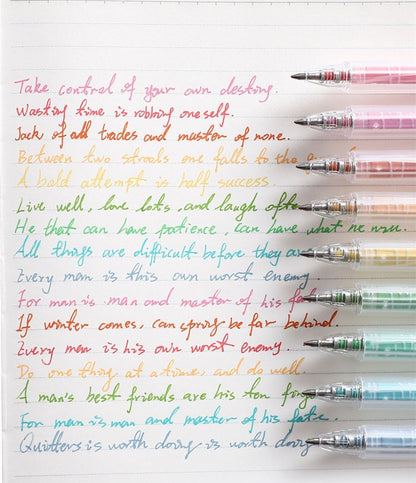 Take control of your own desting.
Wasting time is robbing oneself.
Jack of all trades and master of none.
Between two strools one falls to the g
A bold attempt is half success.
Live well, love lots, and laugh ofte
He that can have patience, can have what he will.
All things are difficult before they are
Every man is this own worst enemy
For man is man and master of his fat
If winter comes, can spring be far behind.
Every man is his own worst enemy.
Do one thing at a time, and do well.
A man's best friends are his ten finge
For man is man and master of his fate.
Quitters is worth doing is worth doing